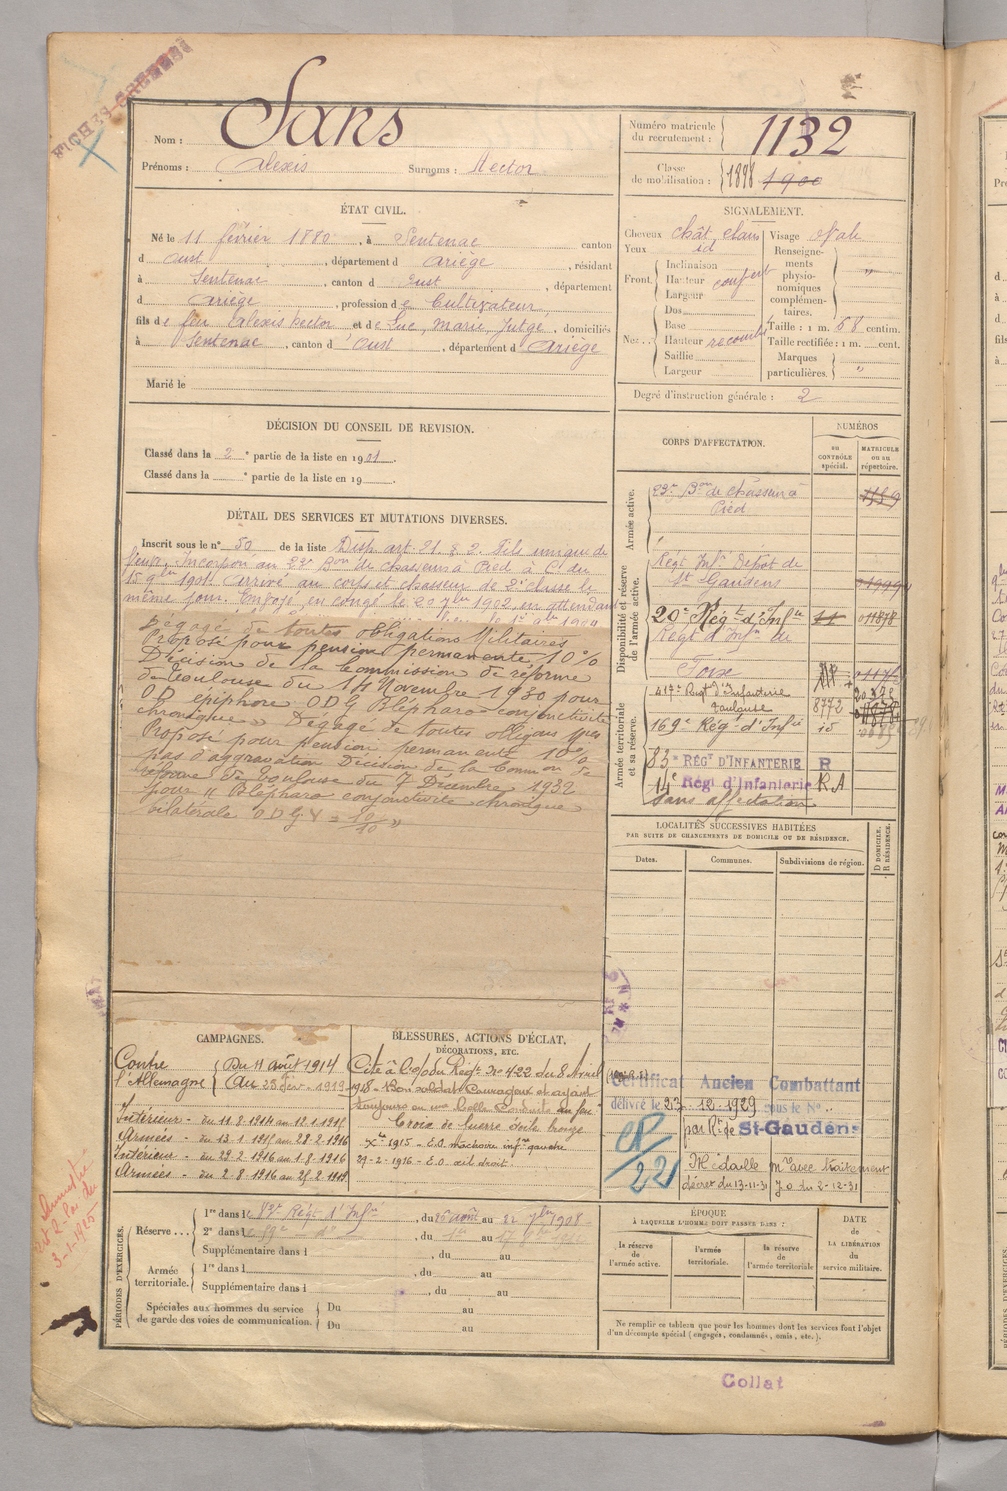 Nom : Sans
Prénoms : Alexis Surnoms : Hector
Numéro matricule du recrutement : 1132
Classe de mobilisation : 1898 1900
ÉTAT CIVIL.
Né le 11 février 1880, à Sentenac canton
d Oust, département d Ariège, résidant
à Sentenac, canton d Oust, département
d Ariège, profession de Cultivateur
fils de feu Alexis Hector et de Luc, Marie, Jutge, domiciliés
à Sentenac, canton d Oust, département d Ariège
Marié le
SIGNALEMENT.
Cheveux chât. clairs
Yeux id
Front
Inclinaison
Hauteur
Largeur
Nez
Dos
Base
Hauteur
Saillie
Largeur
Visage Ovale
Renseignements physionomiques complémentaires. "
Taille : 1 m. 68 centim.
Taille rectifiée : 1 m. cent.
Marques particulières. "
Degré d'instruction générale : 2
DÉCISION DU CONSEIL DE REVISION.
Classé dans la 2e partie de la liste en 1901.
Classé dans la e partie de la liste en 19
DÉTAIL DES SERVICES ET MUTATIONS DIVERSES.
Inscrit sous le n° 50 de la liste Disp. art. 21 § 2. Fils unique de
veuve. Incorporé au 23e Bon de chasseurs à Pied à C. du
15 9bre 1901. Arrivé au corps et chasseur de 2e classe le
même jour. Envoyé en congé le 20 7bre 1902, en attendant
Dégagé de toutes obligations Militaires
Proposé pour pension permanente 10%
Décision de la Commission de réforme
de Toulouse du 14 Novembre 1930 pour
OD épiphore ODG Blépharo conjonctivite
chronique » Dégagé de toutes obligons Mres
Proposé pour pension permanente 10%
pas d'aggravation Décision de la Common de
réforme de Toulouse du 7 Décembre 1932
pour « Blépharo conjonctivite chronique
bilatérale ODG V = 10/10 »
CORPS D'AFFECTATION.
NUMÉROS
au CONTRÔLE spécial.
MATRICULE ou au répertoire.
Armée active.
23e Bon de chasseurs à
Pied
Disponibilité et réserve de l'armée active.
Régt Infie Dépôt de
St Gaudens
20e Régt d'Infie
Régt d'Infie de
Foix
Armée territoriale et sa réserve.
417e Régt d'Infanterie
Toulouse 8772
169e Régt d'Infie 15
83e RÉGt D'INFANTERIE R
14e Régt d'Infanterie RA
Sans affectation
LOCALITÉS SUCCESSIVES HABITÉES
PAR SUITE DE CHANGEMENTS DE DOMICILE OU DE RÉSIDENCE.
Dates.
Communes.
Subdivisions de région.
D DOMICILE.
R RÉSIDENCE.
CAMPAGNES.
Contre l'Allemagne
Du 11 août 1914
Au 25 Févr. 1919
Intérieur - du 11.8.1914 au 12.1.1915
Armées - du 13.1.1915 au 28.2.1916
Intérieur - du 29.2.1916 au 1.8.1916
Armées - du 2.8.1916 au 25.2.1919
BLESSURES, ACTIONS D'ÉCLAT,
DÉCORATIONS, ETC.
Cité à l'o/ du Régt No 422 du 8 Avril
1918 - Bon soldat Courageux et ayant
toujours eu une belle conduite au feu
Croix de Guerre étoile bronze
Xbre 1915 - E.O. machoire infre gauche
29-2-1916 - E.O. œil droit
Certificat Ancien Combattant
délivré le 23.12.1929 sous le N°
par Rt de St-Gaudens
CP/221
Médaille Mre avec traitement
décret du 13-11-31 J.O du 2-12-31
PÉRIODES D'EXERCICES.
Réserve
1re dans le 83e Régt d'Infie, du août au 22 7bre 1908
2e dans le
Supplémentaire dans l , du au
Armée territoriale.
1re dans l , du au
Supplémentaire dans l , du au
Spéciales aux hommes du service
de garde des voies de communication.
Du au
Du au
ÉPOQUE
À LAQUELLE L'HOMME DOIT PASSER DANS :
la réserve de l'armée active.
l'armée territoriale.
la réserve de l'armée territoriale
DATE DE LA LIBÉRATION du service militaire.
Ne remplir ce tableau que pour les hommes dont les services font l'objet
d'un décompte spécial (engagés, condamnés, omis, etc.).
Amnistié
3-1-1925
Collat